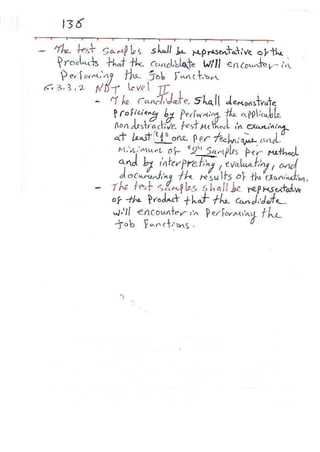 136
- The test samples shall be representative of the
Products that the candidate will encounter in
Performing the Job Function
6.3.3.2 NDT level II
- The candidate shall demonstrate
Proficiency by Performing the applicable
nondestructive test Method in examining
at least "1" one per technique and
Minimum of "2" samples per Method
and by interpreting, evaluating, and
documenting the results of the examination.
- The test samples shall be representative
of the product that the candidate
will encounter in performing the
Job Functions.